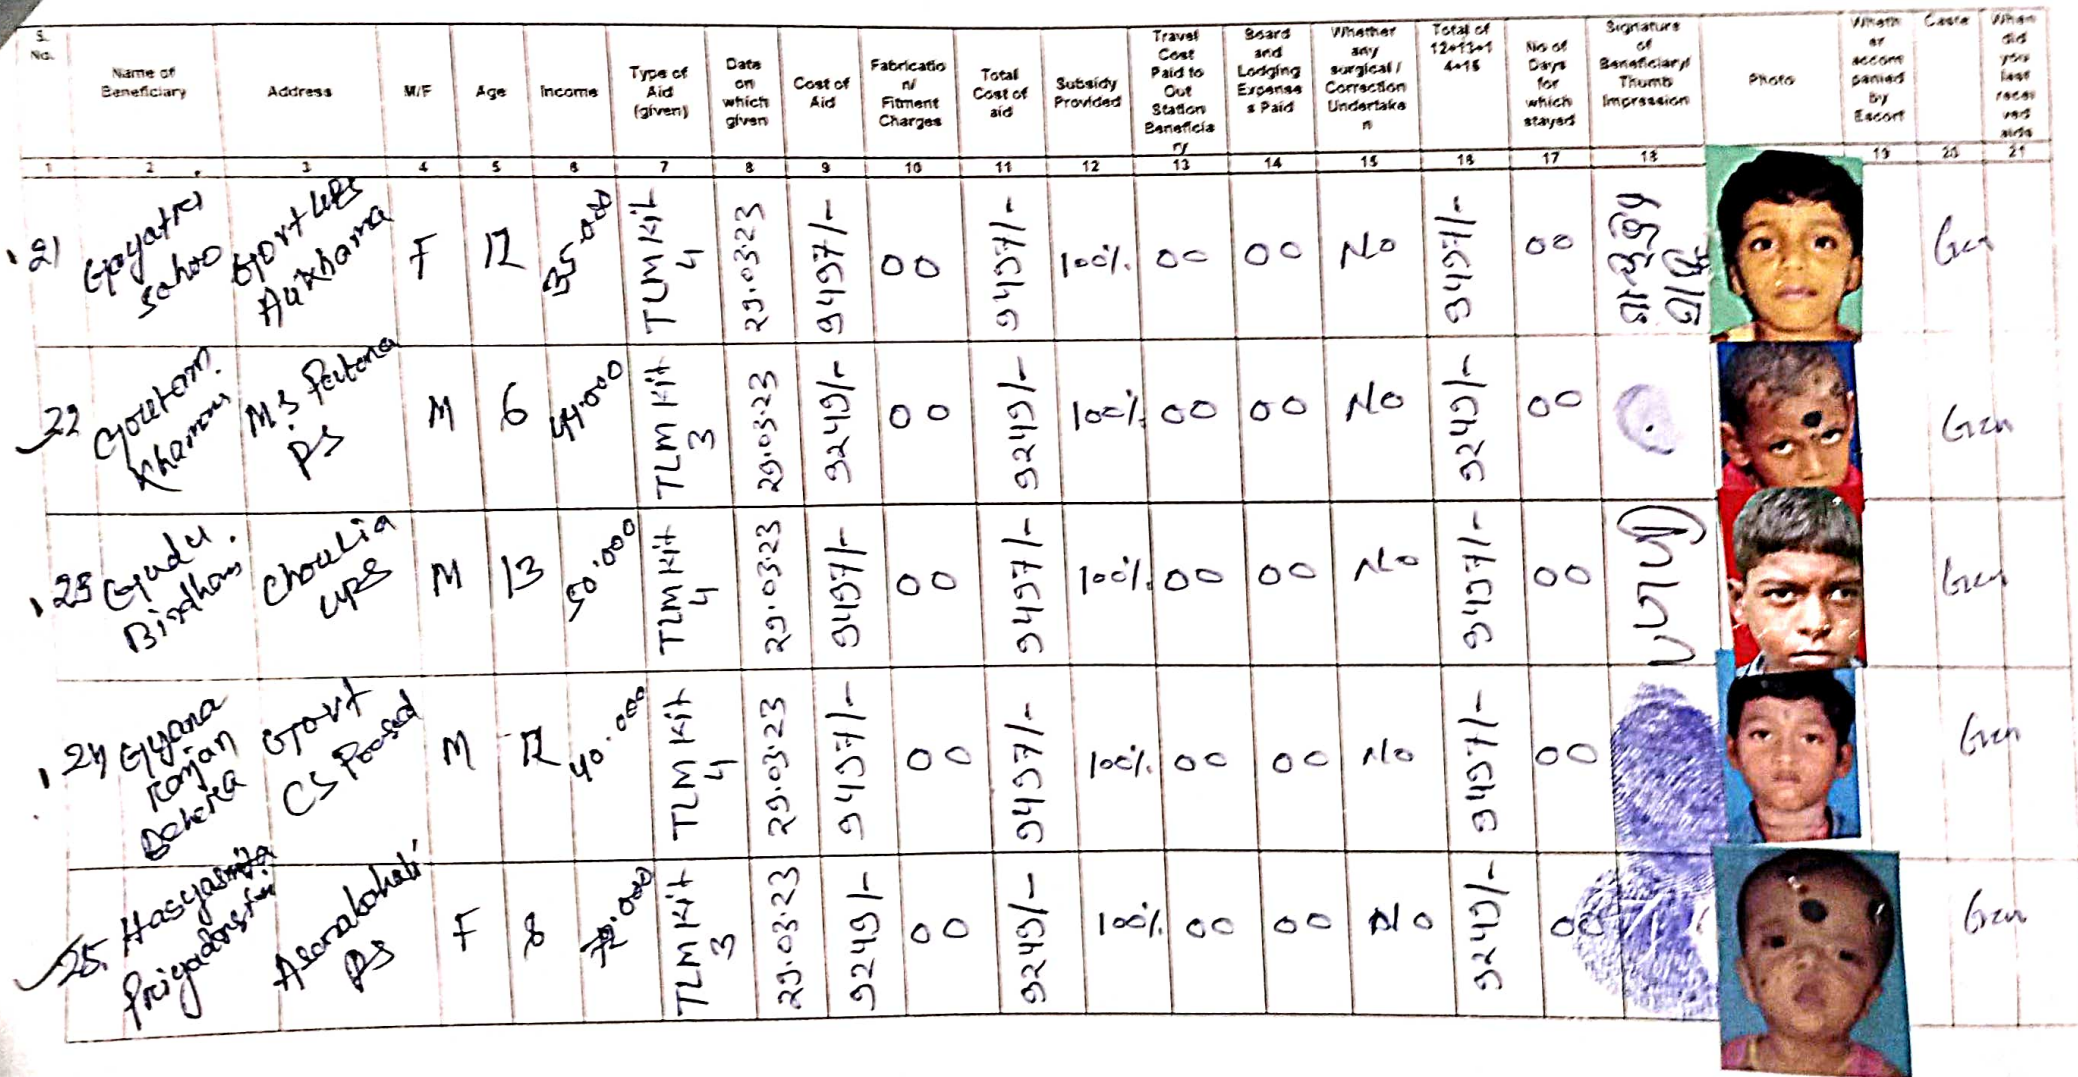 S. No. Name of Beneficiary Address M/F Age Income Type of Aid (given) Date on which given Cost of Aid Fabricatio n/ Fitment Charges Total Cost of aid Subsidy Provided Travel Cost Paid to Out Station Beneficia ry Board and Lodging Expense s Paid Whether any surgical / Correction Undertake n Total of 12+13+1 4+15 No of Days for which stayed Signature of Beneficiary/ Thumb Impression Photo Wheth er accom panied by Escort Caste When did you last recei ved aids
1 2 3 4 5 6 7 8 9 10 11 12 13 14 15 16 17 18 19 20 21
21 Gayatri Sahoo Govt UPS F 12 35.000 TLM Kit 4 29.03.23 9497/- 00 9497/- 100% 00 00 No 9497/- 00 Gen
22 Goutam M.S Patana PS M 6 44.000 TLM Kit 3 29.03.23 9249/- 00 9249/- 100% 00 00 No 9249/- 00 Gen
23 Gudu Birdhan Choulia UPS M 13 50.000 TLM Kit 4 29.03.23 9497/- 00 9497/- 100% 00 00 No 9497/- 00 Gen
24 Gyana Ranjan Behera Govt CS M 12 40.000 TLM Kit 4 29.03.23 9497/- 00 9497/- 100% 00 00 No 9497/- 00 Gen
25. Hasyasmita Priyadarsini PS F 8 72.000 TLM Kit 3 29.03.23 9249/- 00 9249/- 100% 00 00 No 9249/- 00 Gen